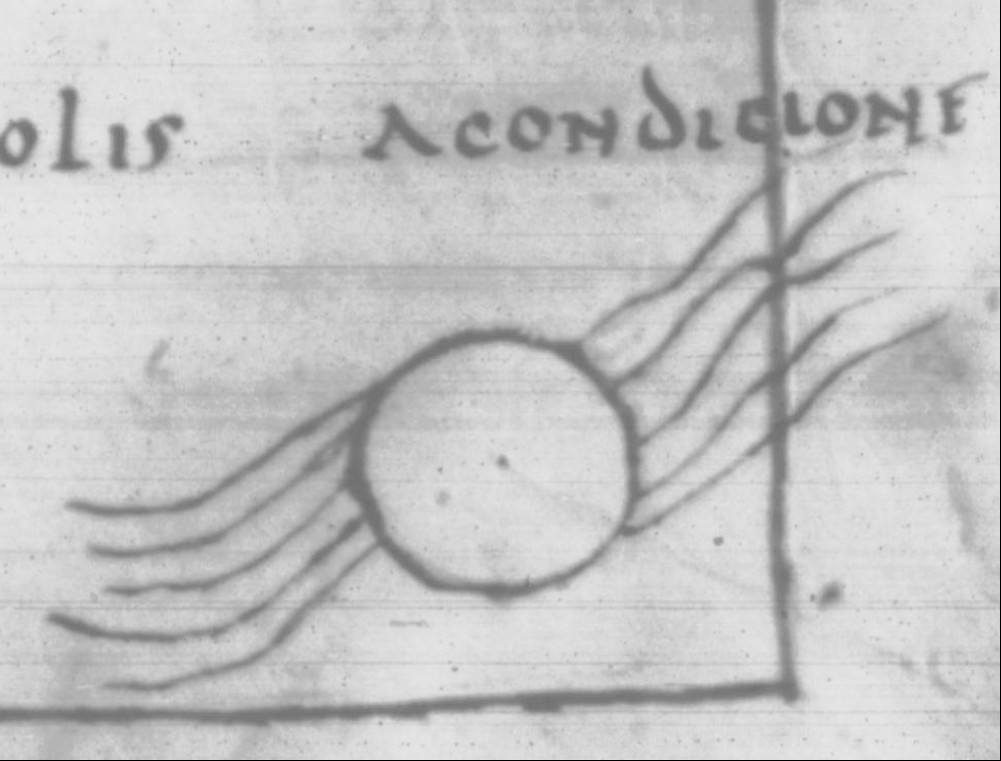 olis ACONDICIONE